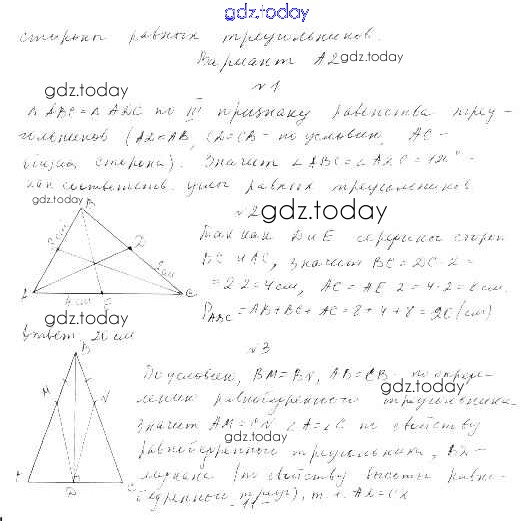 gdz.today
стороны равных треугольников.
Вариант А2 gdz.today
№1
gdz.today
△ABC = △ADC по III признаку равенства треу-
гольников (AD=AB, CD=CB - по условию, AC -
общая сторона). Значит ∠ABC=∠ADC=
как соответств. углы равных треугольников
gdz.today
№2 gdz.today
Так как D и E середины сторон
BC и AC, значит BC = DC · 2 =
= 2 · 2 = 4см, AC = AE · 2 = 4 · 2 = 8см.
P ABC = AB + BC + AC = 8 + 4 + 8 = 20 (см)
B
D
A
E
C
4см
2см
gdz.today
Ответ: 20 см
№3
B
M
N
A
D
C
По условию, BM=BN, AB=CB - по опреде-
gdz.today
лению равнобедренного треугольника.
Значит AM=CN ∠A=∠C по свойству
gdz.today
равнобедренного треугольника, BD -
медиана (по свойству высоты равно-
бедренного треуг), т.е. AD=